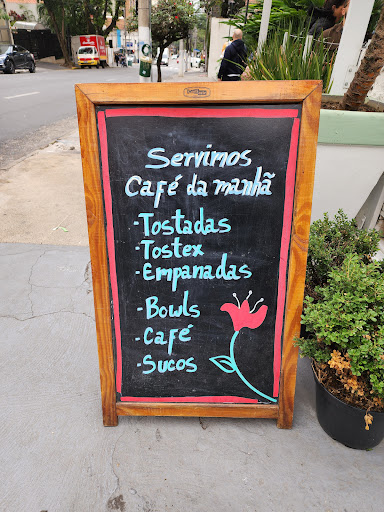 Servimos
Café da manhã
-Tostadas
-Tostex
-Empanadas
-Bowls
-Café
-Sucos